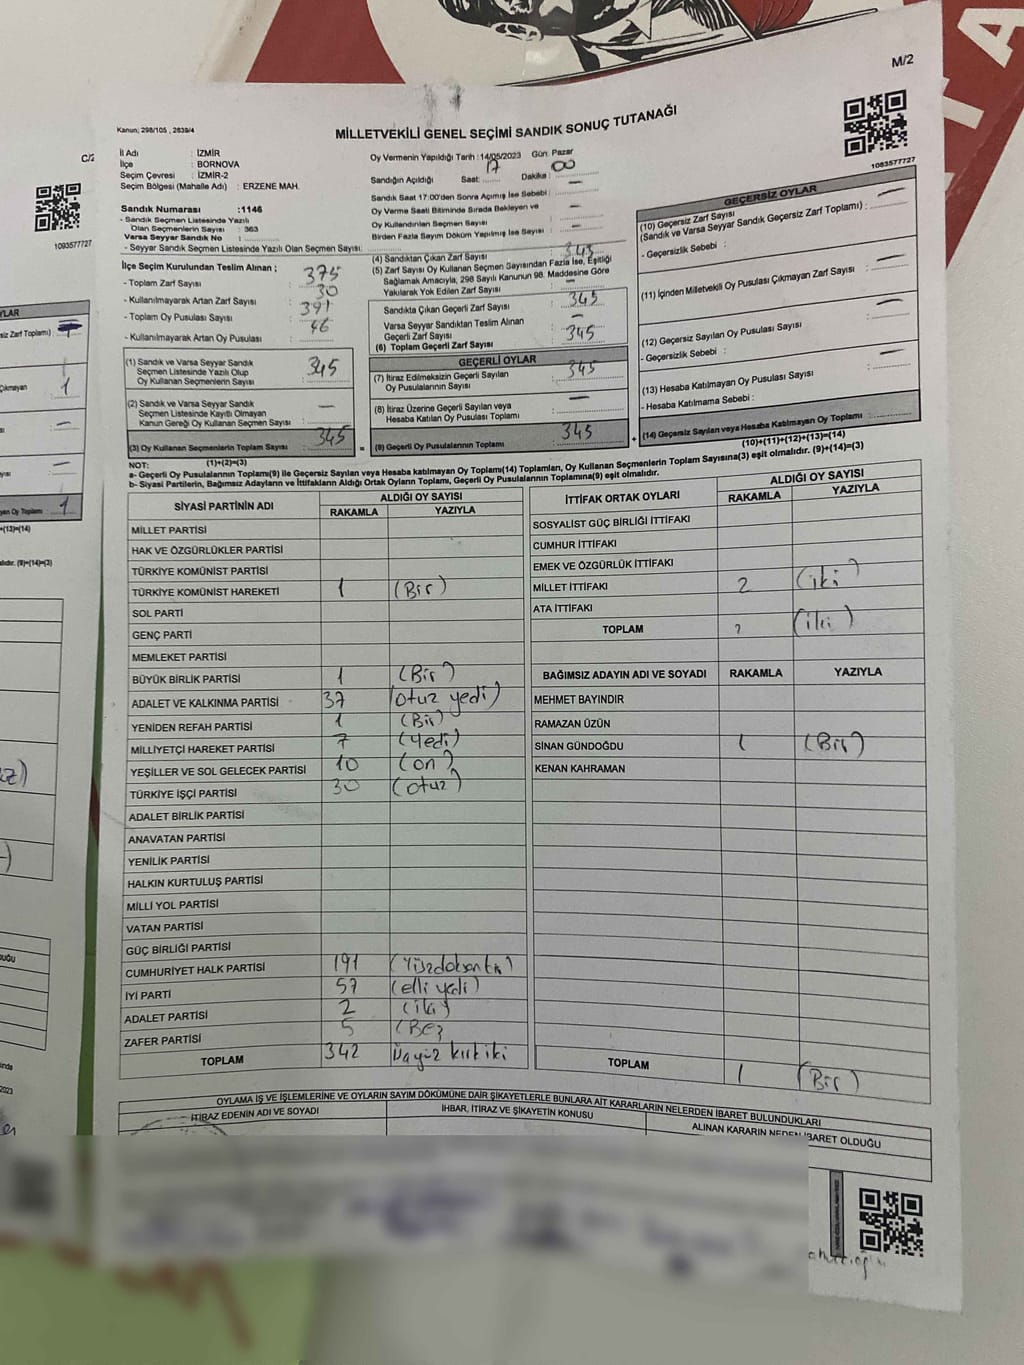 M/2
Kanun; 298/105 , 2839/4
MİLLETVEKİLİ GENEL SEÇİMİ SANDIK SONUÇ TUTANAĞI
1093577727
İl Adı : İZMİR
İlçe : BORNOVA
Seçim Çevresi : İZMİR-2
Seçim Bölgesi (Mahalle Adı) : ERZENE MAH.
Sandık Numarası :1146
- Sandık Seçmen Listesinde Yazılı
Olan Seçmenlerin Sayısı : 363
Varsa Seyyar Sandık No :
- Seyyar Sandık Seçmen Listesinde Yazılı Olan Seçmen Sayısı:
Oy Vermenin Yapıldığı Tarih :14/05/2023 Gün: Pazar
Sandığın Açıldığı Saat: 17 Dakika: 00
Sandık Saat 17:00'den Sonra Açılmış İse Sebebi: —
Oy Verme Saati Bitiminde Sırada Bekleyen ve
Oy Kullandırılan Seçmen Sayısı : —
Birden Fazla Sayım Döküm Yapılmış İse Sayısı : —
İlçe Seçim Kurulundan Teslim Alınan ;
- Toplam Zarf Sayısı : 375
- Kullanılmayarak Artan Zarf Sayısı : 30
- Toplam Oy Pusulası Sayısı : 391
- Kullanılmayarak Artan Oy Pusulası : 46
(1) Sandık ve Varsa Seyyar Sandık
Seçmen Listesinde Yazılı Olup
Oy Kullanan Seçmenlerin Sayısı : 345
(2) Sandık ve Varsa Seyyar Sandık
Seçmen Listesinde Kayıtlı Olmayan
Kanun Gereği Oy Kullanan Seçmen Sayısı : —
(3) Oy Kullanan Seçmenlerin Toplam Sayısı : 345
(1)+(2)=(3)
(4) Sandıktan Çıkan Zarf Sayısı : 345
(5) Zarf Sayısı Oy Kullanan Seçmen Sayısından Fazla İse, Eşitliği
Sağlamak Amacıyla, 298 Sayılı Kanunun 98. Maddesine Göre
Yakılarak Yok Edilen Zarf Sayısı : —
Sandıkta Çıkan Geçerli Zarf Sayısı : 345
Varsa Seyyar Sandıktan Teslim Alınan
Geçerli Zarf Sayısı : —
(6) Toplam Geçerli Zarf Sayısı : 345
GEÇERLİ OYLAR
(7) İtiraz Edilmeksizin Geçerli Sayılan
Oy Pusulalarının Sayısı : 345
(8) İtiraz Üzerine Geçerli Sayılan veya
Hesaba Katılan Oy Pusulası Toplamı : —
= (9) Geçerli Oy Pusulalarının Toplamı : 345
GEÇERSİZ OYLAR
(10) Geçersiz Zarf Sayısı
(Sandık ve Varsa Seyyar Sandık Geçersiz Zarf Toplamı) : —
- Geçersizlik Sebebi :
(11) İçinden Milletvekili Oy Pusulası Çıkmayan Zarf Sayısı : —
(12) Geçersiz Sayılan Oy Pusulası Sayısı : —
- Geçersizlik Sebebi :
(13) Hesaba Katılmayan Oy Pusulası Sayısı : —
- Hesaba Katılmama Sebebi :
+ (14) Geçersiz Sayılan veya Hesaba Katılmayan Oy Toplamı :
(10)+(11)+(12)+(13)=(14)
NOT:
a- Geçerli Oy Pusulalarının Toplamı(9) ile Geçersiz Sayılan veya Hesaba katılmayan Oy Toplamı(14) Toplamları, Oy Kullanan Seçmenlerin Toplam Sayısına(3) eşit olmalıdır. (9)+(14)=(3)
b- Siyasi Partilerin, Bağımsız Adayların ve İttifakların Aldığı Ortak Oyların Toplamı, Geçerli Oy Pusulalarının Toplamına(9) eşit olmalıdır.
SİYASİ PARTİNİN ADI ALDIĞI OY SAYISI
RAKAMLA YAZIYLA
MİLLET PARTİSİ
HAK VE ÖZGÜRLÜKLER PARTİSİ
TÜRKİYE KOMÜNİST PARTİSİ
TÜRKİYE KOMÜNİST HAREKETİ 1 (Bir)
SOL PARTİ
GENÇ PARTİ
MEMLEKET PARTİSİ
BÜYÜK BİRLİK PARTİSİ 1 (Bir)
ADALET VE KALKINMA PARTİSİ 37 (otuz yedi)
YENİDEN REFAH PARTİSİ 1 (Bir)
MİLLİYETÇİ HAREKET PARTİSİ 7 (Yedi)
YEŞİLLER VE SOL GELECEK PARTİSİ 10 (on)
TÜRKİYE İŞÇİ PARTİSİ 30 (otuz)
ADALET BİRLİK PARTİSİ
ANAVATAN PARTİSİ
YENİLİK PARTİSİ
HALKIN KURTULUŞ PARTİSİ
MİLLİ YOL PARTİSİ
VATAN PARTİSİ
GÜÇ BİRLİĞİ PARTİSİ
CUMHURİYET HALK PARTİSİ 191
İYİ PARTİ 57 (elli yedi)
ADALET PARTİSİ 2 (iki)
ZAFER PARTİSİ 5 (BEŞ
TOPLAM 342 Üçyüz kırk iki
İTTİFAK ORTAK OYLARI ALDIĞI OY SAYISI
RAKAMLA YAZIYLA
SOSYALİST GÜÇ BİRLİĞİ İTTİFAKI
CUMHUR İTTİFAKI
EMEK VE ÖZGÜRLÜK İTTİFAKI
MİLLET İTTİFAKI 2 (iki)
ATA İTTİFAKI
TOPLAM 2 (iki)
BAĞIMSIZ ADAYIN ADI VE SOYADI RAKAMLA YAZIYLA
MEHMET BAYINDIR
RAMAZAN ÜZÜN
SİNAN GÜNDOĞDU 1 (Bir)
KENAN KAHRAMAN
TOPLAM 1 (Bir)
OYLAMA İŞ VE İŞLEMLERİNE VE OYLARIN SAYIM DÖKÜMÜNE DAİR ŞİKAYETLERLE BUNLARA AİT KARARLARIN NELERDEN İBARET BULUNDUKLARI
İTİRAZ EDENİN ADI VE SOYADI İHBAR, İTİRAZ VE ŞİKAYETİN KONUSU ALINAN KARARIN NEDEN İBARET OLDUĞU